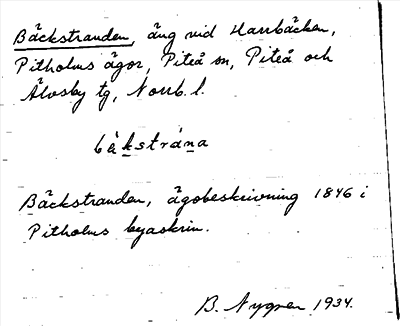 Bäckstranden, äng vid Harrbäcken,
Pitholms ägor, Piteå sn, Piteå och
Älvsby tg, Norrb. l.
bäkstrána
Bäckstranden, ägobeskrivning 1846 i
Pitholms byaskrin.
B. Nygren 1934.